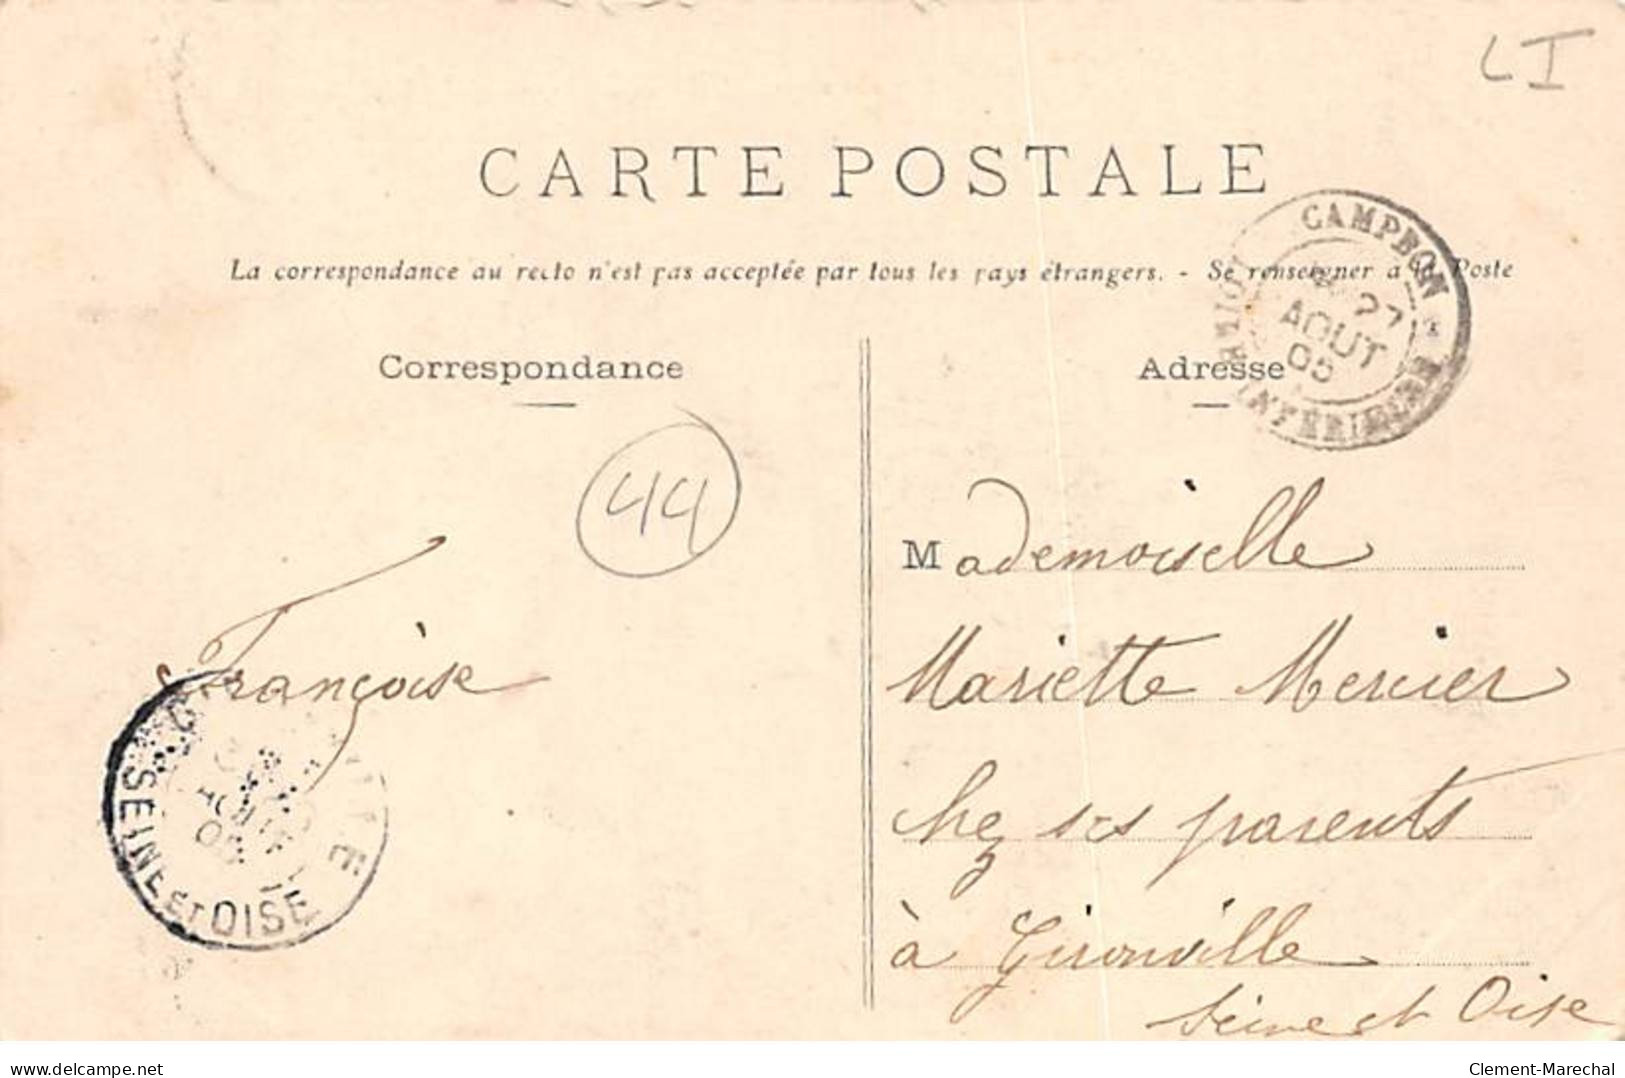 LI
CARTE POSTALE
La correspondance au recto n'est pas acceptée par tous les pays étrangers. - Se renseigner a la Poste
CAMPBON
27
AOUT
05
INFÉRIEURE
Correspondance
Adresse
44
Françoise
Mademoiselle
Mariette Mercier
chez ses parents
à Gironville
Seine et Oise
SEINE ET OISE
AOUT
05
delcampe.net
Clement-Marechal